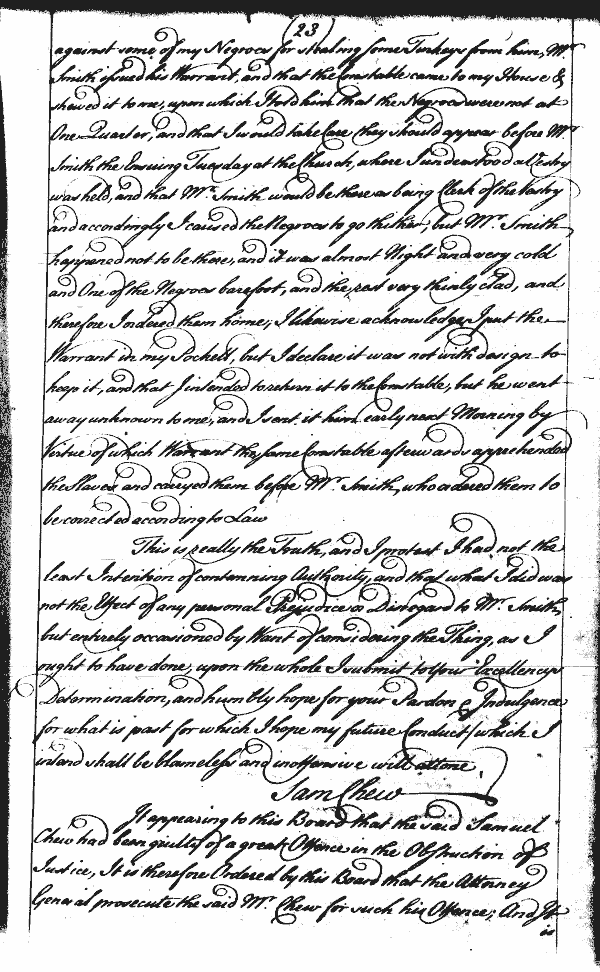 (23)
against some of my Negroes for stealing some Turkeys from him, Mr.
Smith issued his Warrant, and that the Constable came to my House &
shewed it to me, upon which I told him that the Negroes were not at
One Quarter, and that I would take Care they should appear before Mr.
Smith the Ensuing Tuesday at the Church, where I understood a Vestry
was held, and that Mr. Smith would be there as being Clerk of the Vestry
and accordingly I caused the Negroes to go thither, but Mr. Smith
happened not to be there, and it was almost Night and very cold
and One of the Negroes barefoot, and the rest very thinly clad, and
therefore I ordered them home; I likewise acknowledge I put the
Warrant in my Pockett, but I declare it was not with design to
keep it, and that I intended to return it to the Constable, but he went
away unknown to me, and I sent it him early next Morning by
Virtue of which Warrant the same Constable afterwards apprehended
the Slaves and carryed them before Mr. Smith, who ordered them to
be corrected according to Law
This is really the Truth, and I protest I had not the
least Intention of contemning Authority, and that what I did was
not the Effect of any personal Prejudice or Disregard to Mr. Smith,
but entirely occasioned by Want of considering the Thing, as I
ought to have done, upon the whole I submit to Your Excellencys
Determination, and humbly hope for your Pardon & Indulgence
for what is past for which I hope my future Conduct (which I
intend shall be blameless and inoffensive will attone
Sam Chew
It appearing to this Board that the said Samuel
Chew had been guilty of a great Offence in the Obstruction of
Justice, It is therefore Ordered by this Board that the Attorney
General prosecute the said Mr. Chew for such his Offence; And It
is